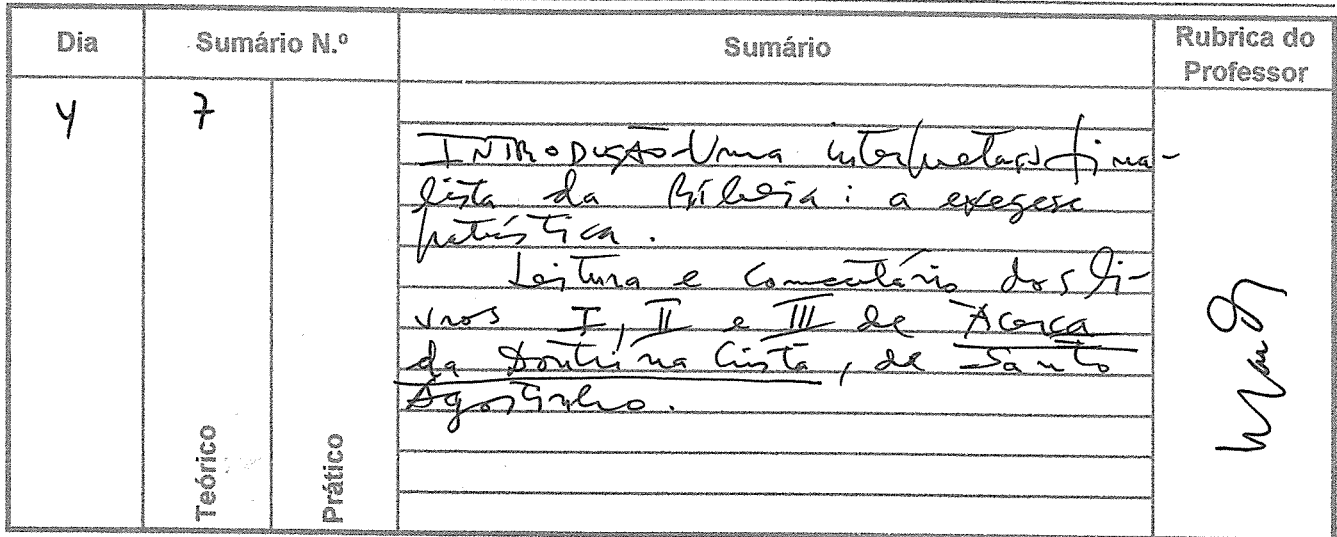 Dia Sumário N.º Sumário Rubrica do Professor
4 7
INTRODUÇÃO - Uma interpretação fina-
lista da Bíblia: a exegese
patrística.
Leitura e comentário dos li-
vros I, II e III de Acerca
da Doutrina Cristã, de Santo
Agostinho.
Teórico
Prático